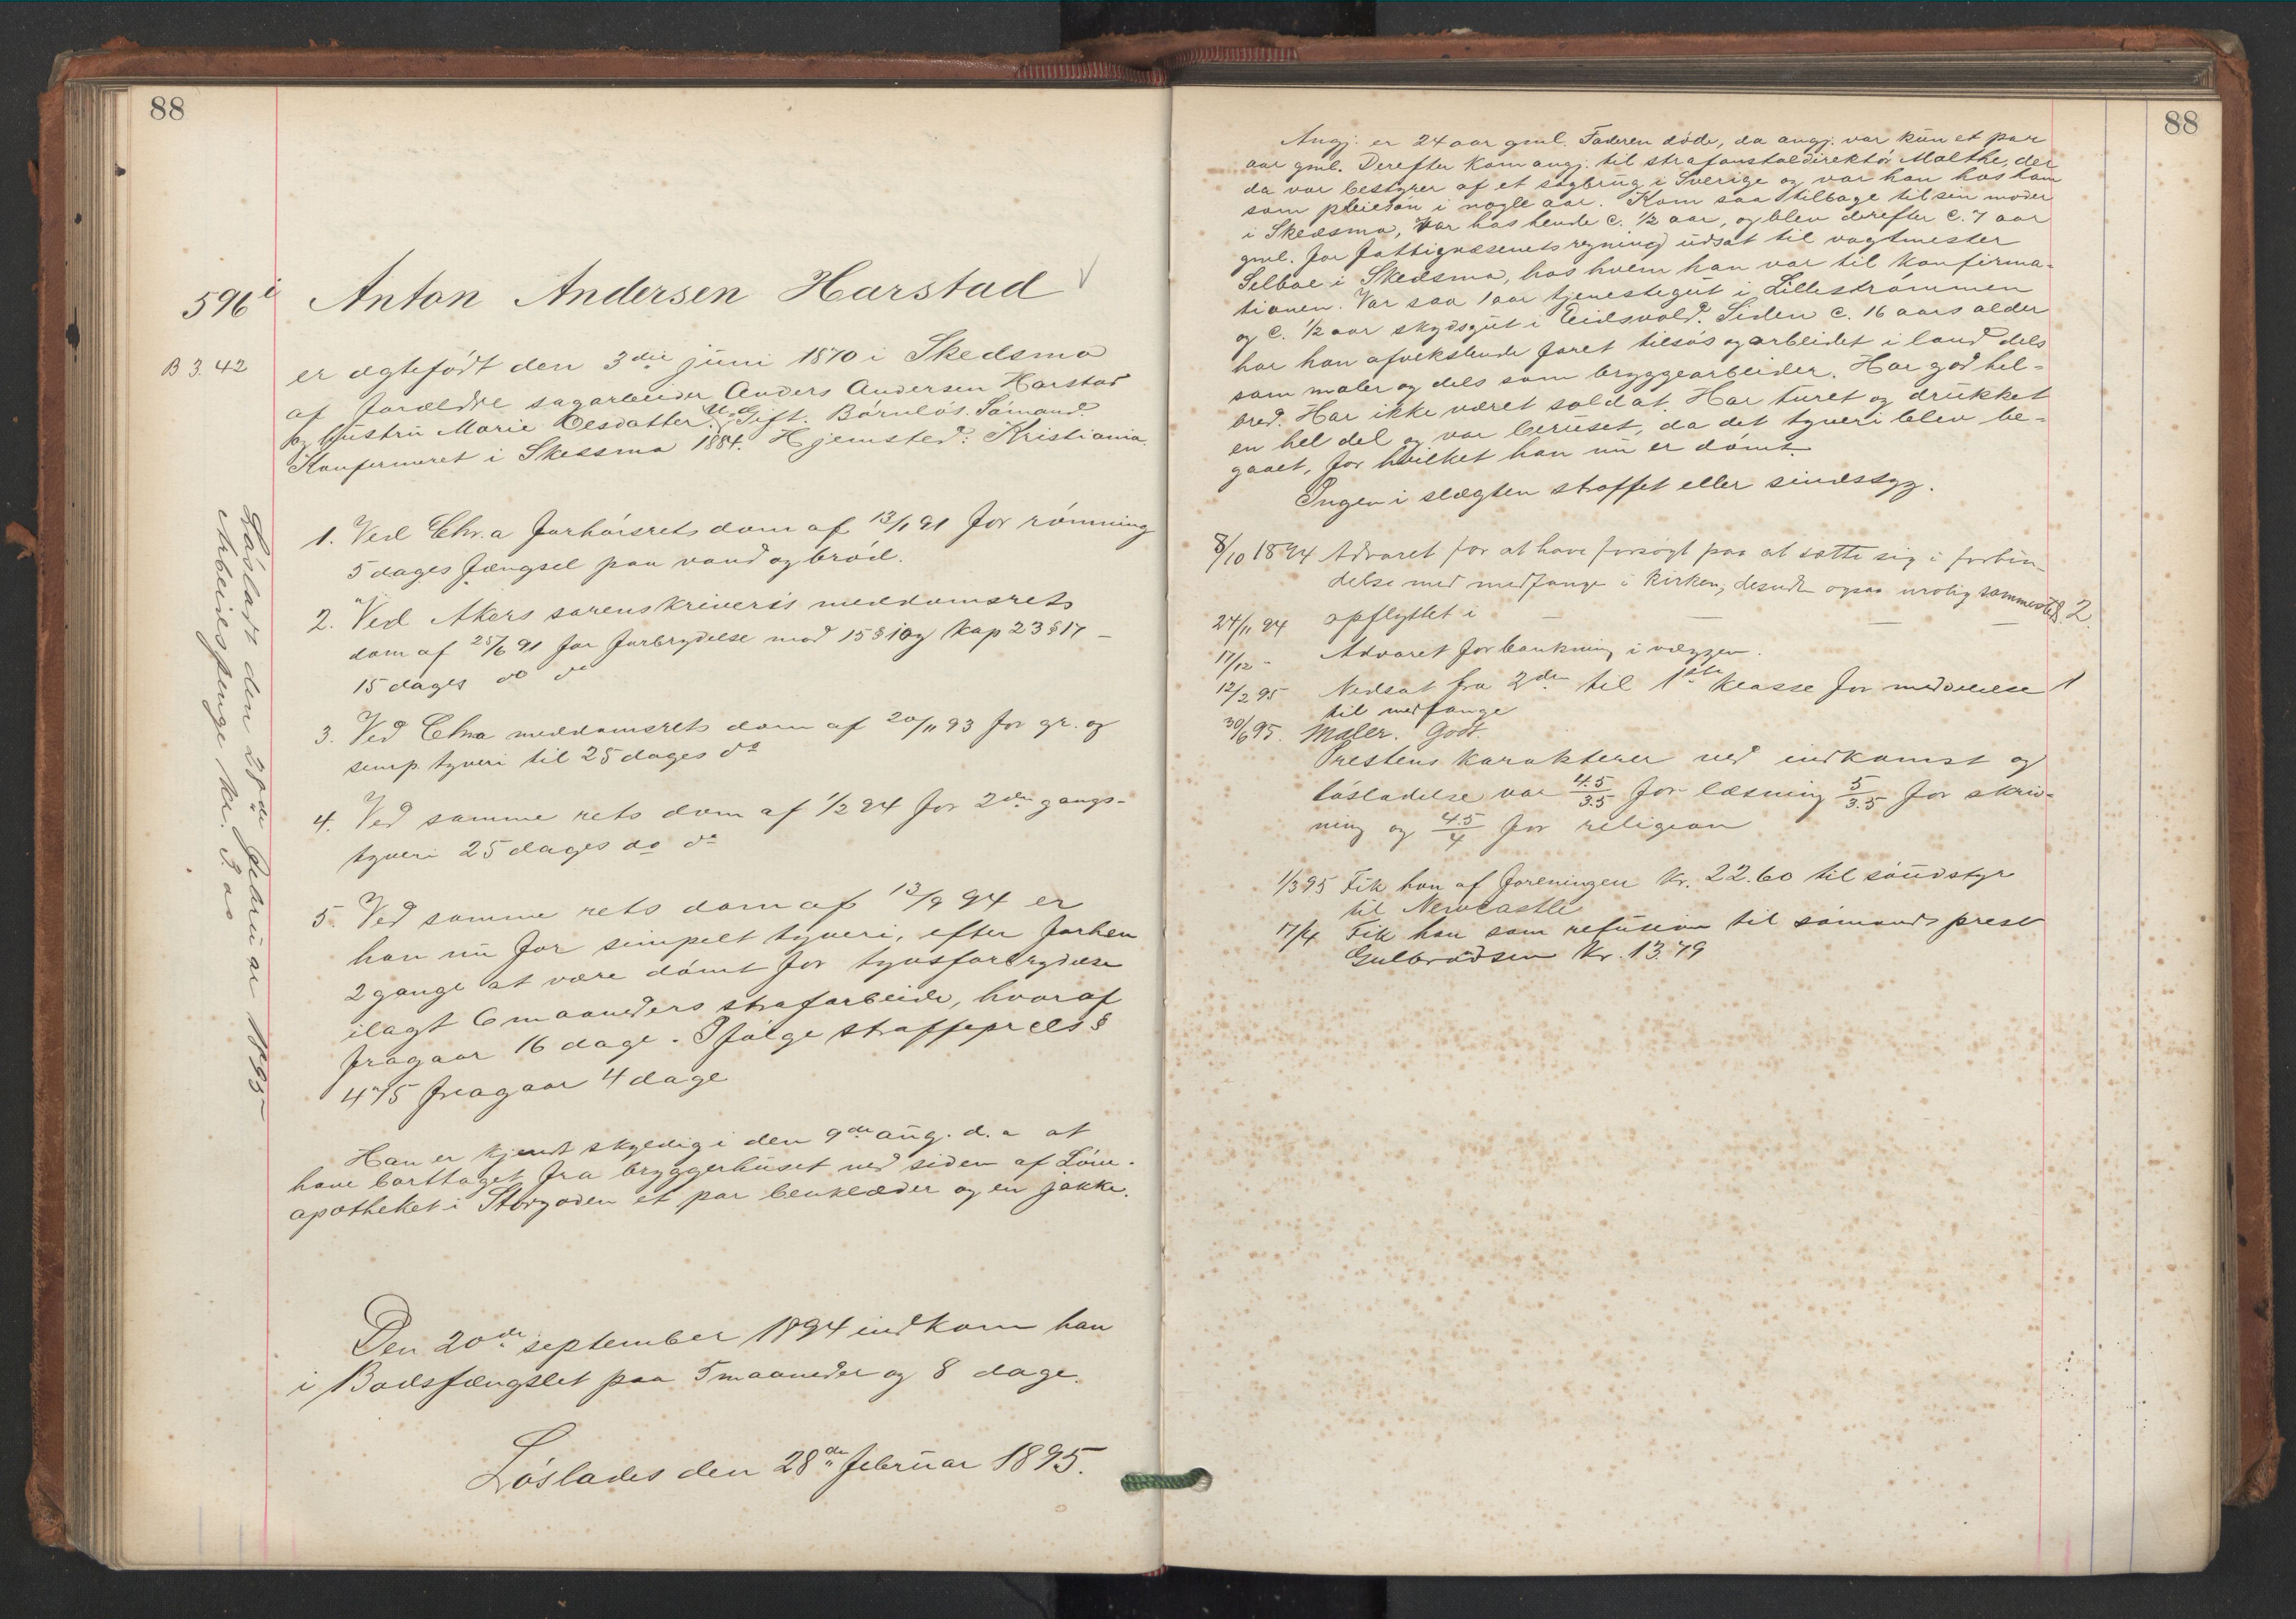 88
596 i Anton Andersen Harstad
B 3.42
er ægtefödt den 3die juni 1870 i Skedsmo
af forældre sagarbeider Anders Andersen Harstad
og hustru Marie Olesdatter. Ugift. Börnlös. Sömand.
Konfirmeret i Skedsmo 1884. Hjemsted: Kristiania.
1. Ved Chr.a forhörsrets dom af 13/1 91 for römning
5 dages fængsel paa vand og bröd.
2. Ved Akers sorenskriveris meddomsrets
dom af 25/6 91 for forbrydelse mod 15 § 1 og kap 23 § 17 –
15 dages do do
3. Ved Chra meddomsrets dom af 20/11 93 for gr. og
simp. tyveri til 25 dages do
4. Ved samme rets dom af 1/2 94 for 2den gangs-
tyveri 25 dages do do
5. Ved samme rets dom af 13/9 94 er
han nu for simpelt tyveri, efter forhen
2 gange at være dömt for tyvsforbrydelse
ilagt 6 maaneders strafarbeide, hvoraf
fragaar 16 dage. Ifölge straffeprcls §
475 fragaar 4 dage
Han er kjendt skyldig i den 9de aug. d. a at
have borttaget fra bryggerhuset ved siden af Löve-
apotheket i Storgaden et par benklæder og en jakke.
Den 20de september 1894 indkom han
i Bodsfængslet paa 5 maaneder og 8 dage.
Löslades den 28de februar 1895.
Lösladt den 28de februar 1895
Arbeidespenge kr.
88
Angj. er 24 aar gml. Faderen döde, da angj. var kun et par
aar gml. Derefter kom angj. til strafanstaldirektör Malthe, der
da var bestyrer af et sagbrug i Sverige og var han hos ham
som pleiesön i nogle aar. Kom saa tilbage til sin moder
i Skedsmo, var hos hende c. 1/2 aar, og blev derefter c. 7 aar
gml. for fattigvæsenets regning udsat til vagtmester
Selboe i Skedsmo, hos hvem han var til konfirma-
tionen. Var saa 1 aar tjenestegut i Lilleströmmen
og c. 1/2 aar skydsgut i Eidsvold. Siden c. 16 aars alder
har han afvekslende faret tilsös og arbeidet i land dels
som maler og dels som bryggearbeider. Har god hel-
bred. Har ikke været soldat. Har turet og drukket
en hel del og var beruset, da det tyveri blev be-
gaaet, for hvilket han nu er dömt.
Ingen i slægten straffet eller sindssyg.
8/10 1894 Advaret for at have forsögt paa at sætte sig i forbin-
delse med medfange i kirken, desuden ogsaa urolig sammesteds.
24/11 94 opflyttet i — — — 2.
17/12 - Advaret for bankning i væggen.
12/2 95 Nedsat fra 2den til 1ste klasse for meddelelse 1
til medfange
30/6 95. Maler. Godt.
Prestens karakterer ved indkomst og
lösladelse var 4.5/3.5 for læsning 5/3.5 for skriv-
ning og 4.5/4 for religion
1/3 95 Fik han af foreningen Kr. 22.60 til udstyr
til Newcastle
17/4 Fik han som refusion til sömandsprest
Gulbrandsen Kr. 13.79